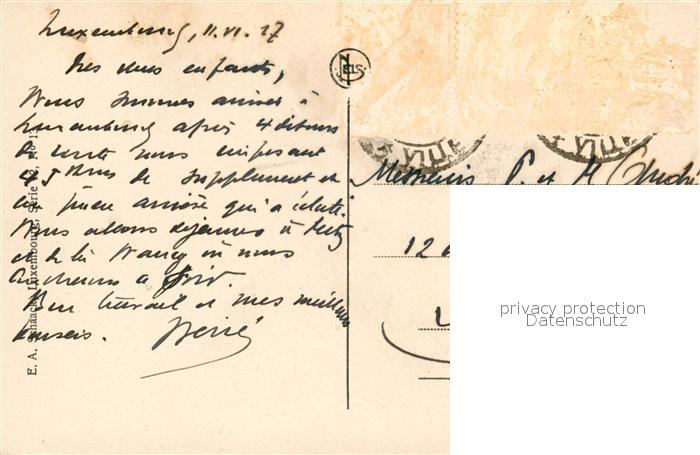 Luxembourg, 11. VI. 27
Mes chers enfants,
Nous sommes arrivés à
Luxembourg après 4 détours
de route nous imposant
45 kms de supplément et
un pneu arrière qui a éclaté.
Nous allons déjeuner à Metz
et de là Nancy où nous
coucherons
Bon travail et mes meilleurs
baisers.
Messieurs P. et M. André
12
E. A. Schaack, Luxembourg, Série
privacy protection
Datenschutz